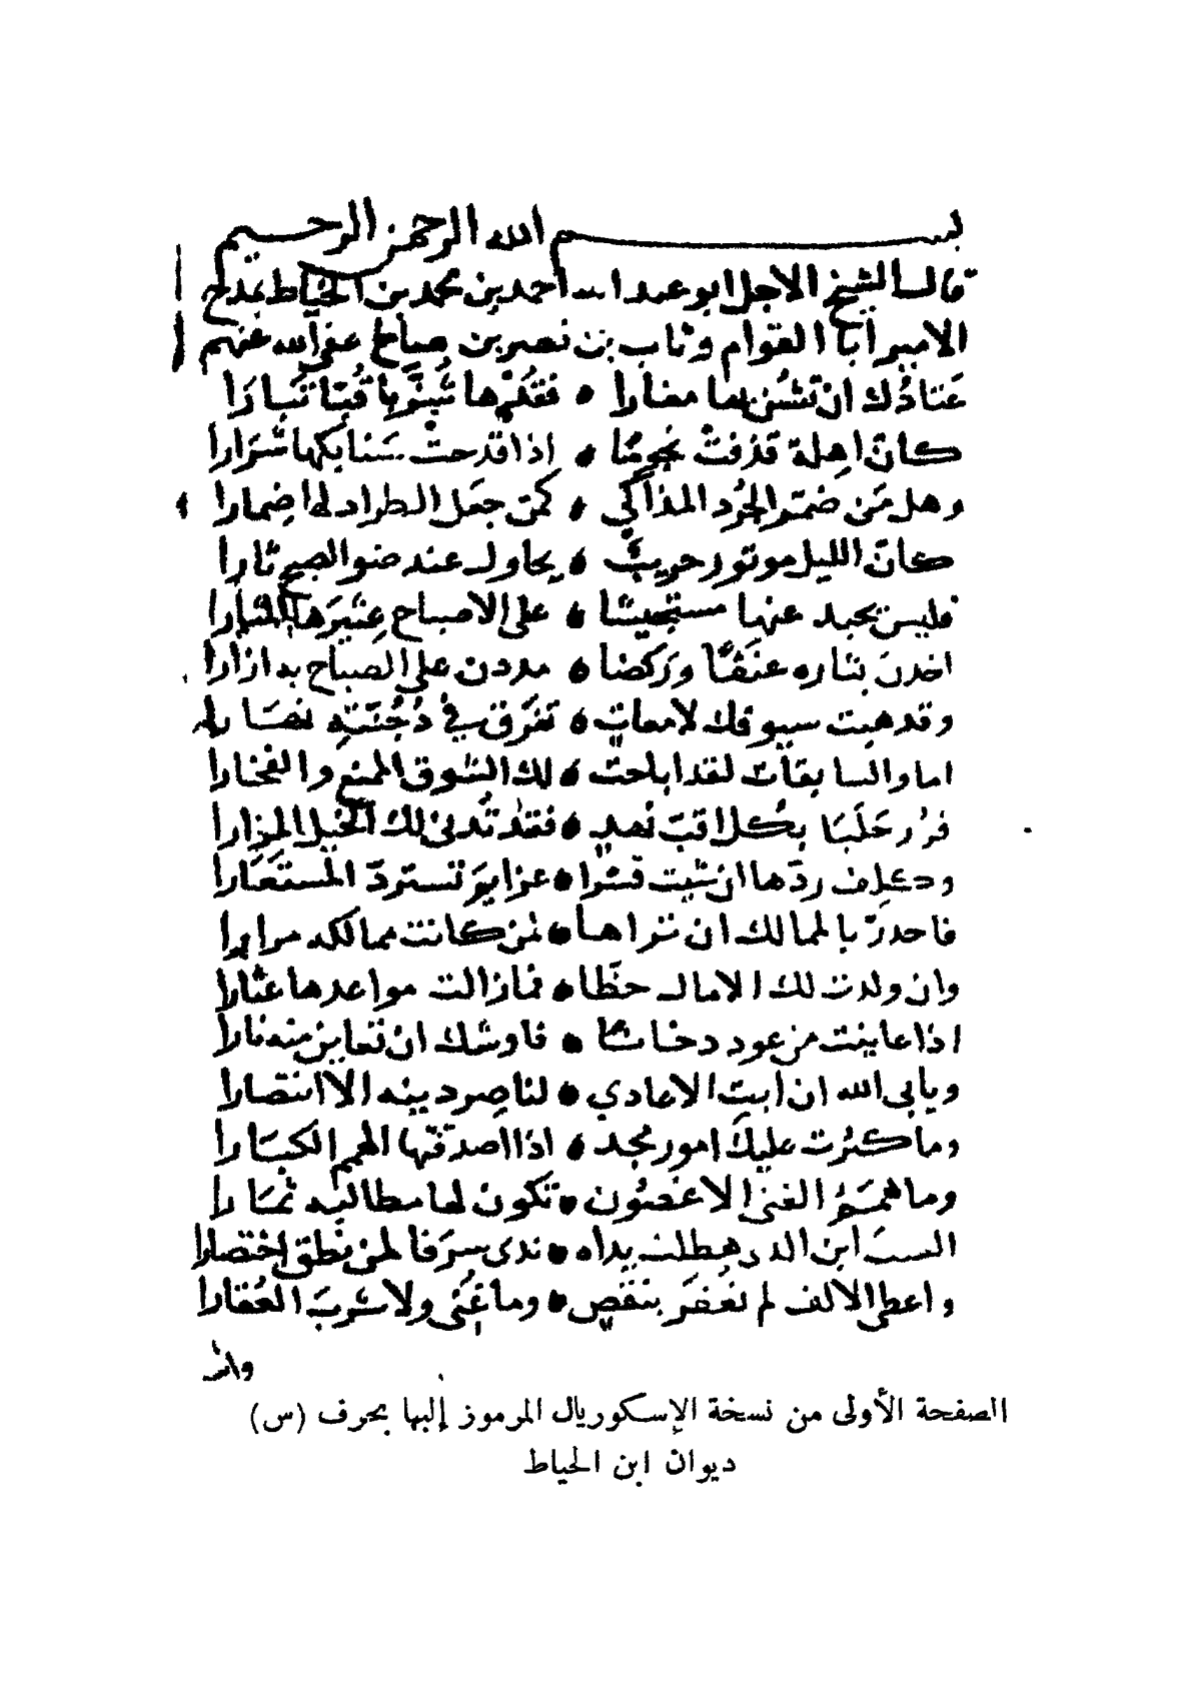 بسم الله الرحمن الرحيم
قال الشيخ الاجل ابو عبد الله احمد بن محمد بن الخياط يمدح
الامير ابا القوام وثاب بن نصر بن صباح عفى الله عنهم
عَتادُك ان تشن بها مغارا • فقُدْها شُزَّبا قُبّا تَبارا
كانّ اهِلة قذفتْ نجومًا • اذا قدحتْ سَنابكها شَرَارا
وهل مَن ضمّر الجُرد المذاكي • كمن جعل الطراد لها ضِمارا
كانّ الليل موتور حريبٌ • يحاول عند ضوء الصبح ثارا
فليس يحيد عنها مستجيشا • على الاصباح عِثيَرَها المثارا
اخذن بثاره عنَقًا وركضا • مددن على الصباح به ازارا
وقد هبت سيوفك لامعاتٍ • تفرّق في دُجُنّتِه نهَارا
اما والسابقات لقد اباحت • لك الشوق الممنع والفخارا
فزُر حَلَبًا بكل اقبّ نهدٍ • فقد تُدني لك الخيل المزارا
وكلف ردّها ان شيت قسْرا • عزايمَ تستردّ المستعَارا
فاجدرْ بالممالك ان تراها • لمن كانت ممالكه مرارا
وان ولدت لك الامال حظّا • فما زالت مواعدها عشارا
اذا عاينت من عود دخانًا • فاوشك ان تعاين منه نارا
ويابى الله ان ابت الاعادي • لناصِر دينه الا انتصارا
وما كبُرت عليكَ امور مجد • اذا اصدقتها الهمم الكبَارا
وما هِمَمُ الفتى الا غصُون • تكون لها مطالبه ثمَارا
الستَ ابن الذي هطلت يداه • ندى سرَفا لمن نطق اختصارا
واعطى الالف لم تعقَر بنقصٍ • وما غُنّى ولا شرِبَ العُقارا
الصفحة الأولى من نسخة الإسكوريال المرموز إليها بحرف (س)
ديوان ابن الخياط